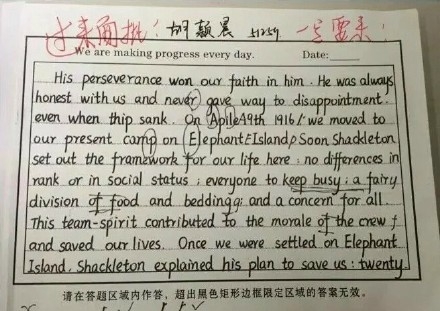 过来面批! 胡颖晨 51259 一定要来!
We are making progress every day. Date:
His perseverance won our faith in him. He was always
honest with us and never gave way to disappointment.
even when thip sank. On Aplle 49th 1916/ we moved to
our present camp on ElephantEIsland Soon Shackleton
set out the framework for our life here : no differences in
rank or in social status ; everyone to keep busy ; a fairy
division of food and bedding; and a concern for all.
This team-spirit contributed to the morale of the crew
and saved our lives. Once we were settled on Elephant
Island, Shackleton explained his plan to save us : twenty
请在答题区域内作答，超出黑色矩形边框限定区域的答案无效。